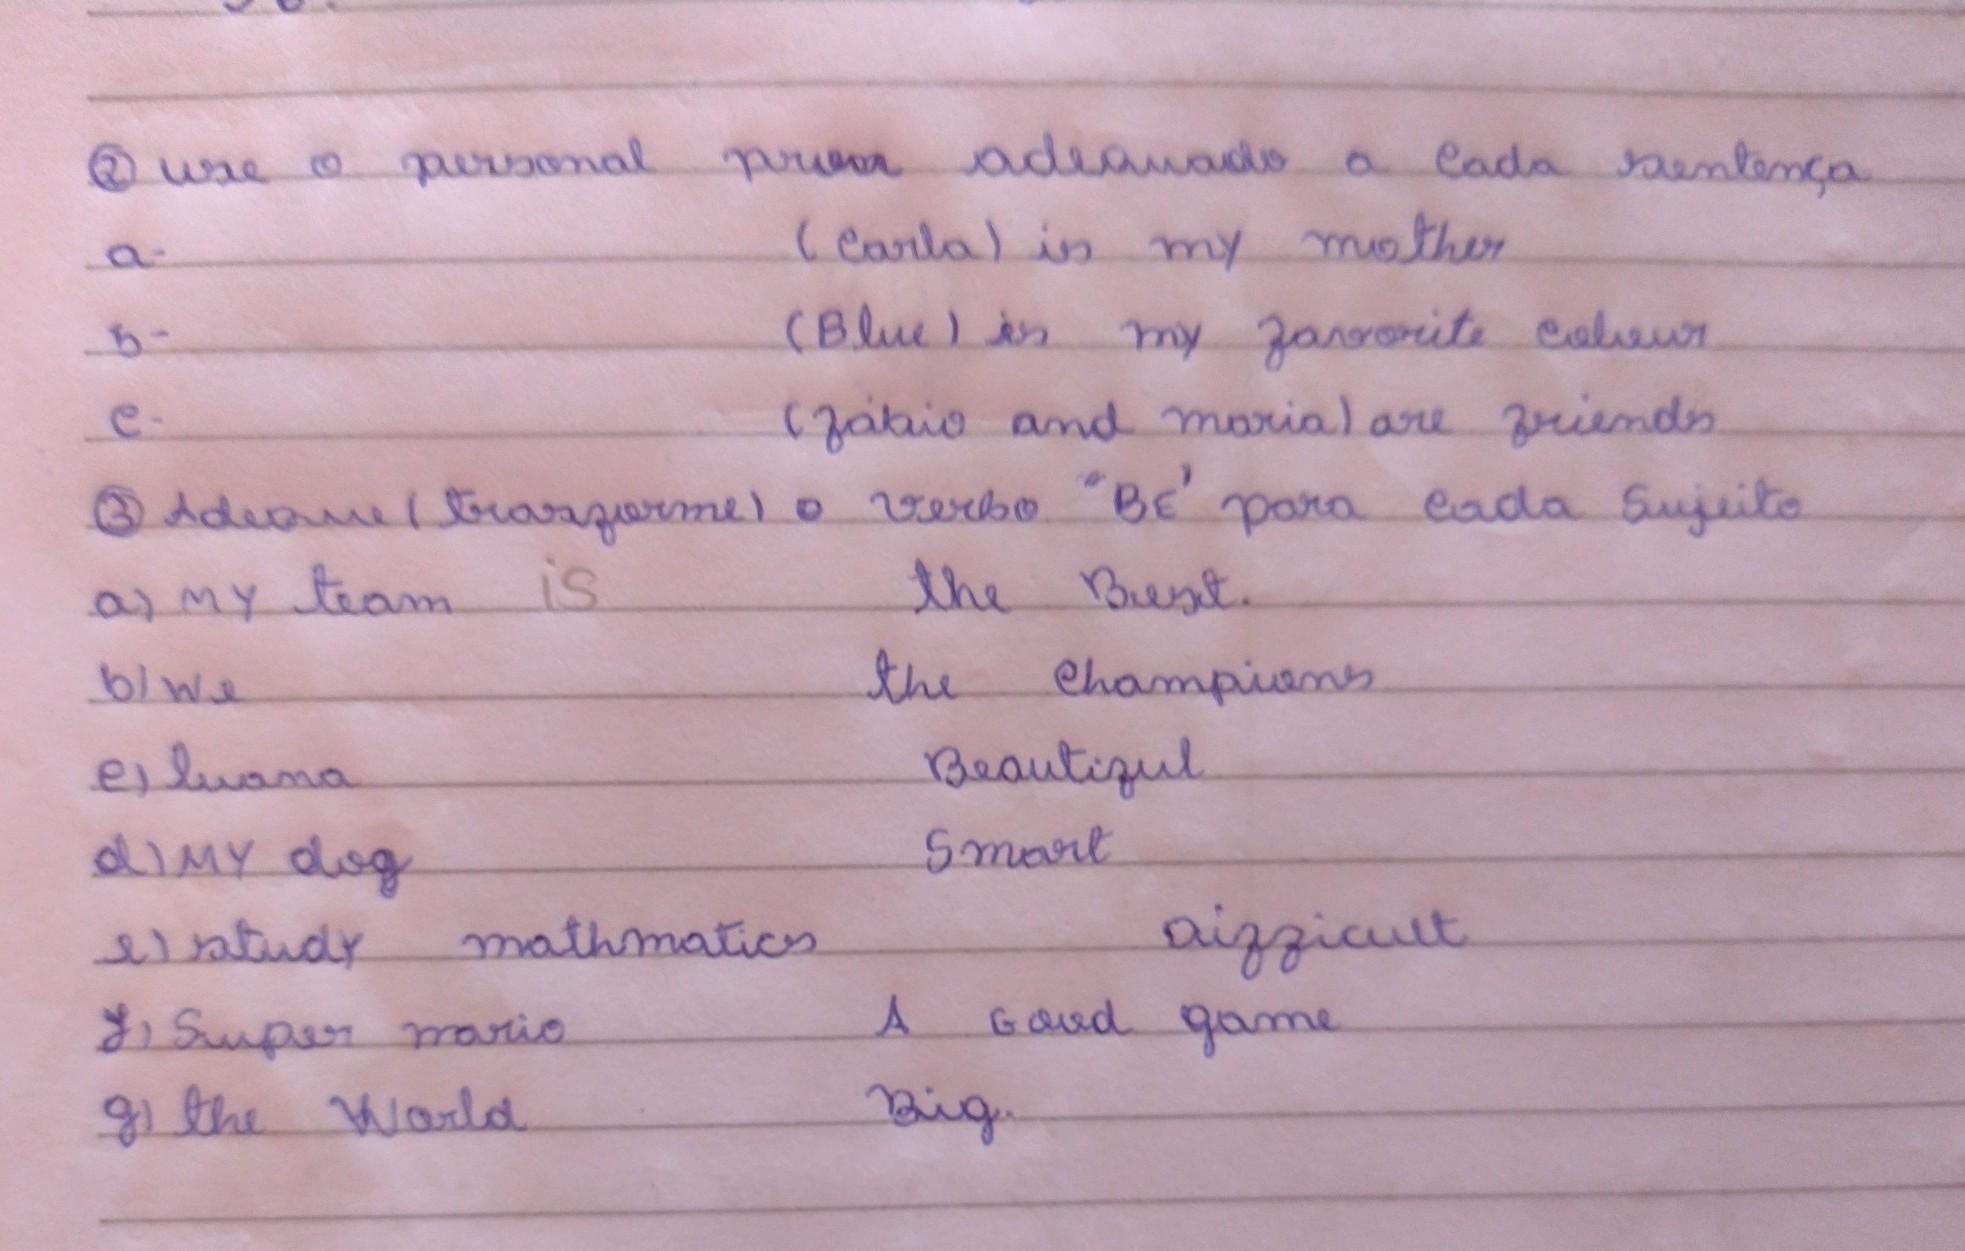 ② use o personal adequado a cada sentença
a- (Carla) is my mother
b- (Blue) is my favorite colour
c- (fábio and maria) are friends
③ Adeque (transforme) o verbo "BE" para cada Sujeito
a) MY team is the Best.
b) We the Champions
c) luana Beautiful
d) MY dog Smart
e) study mathmatics Difficult
f) Super mario A Good game
g) the World Big.